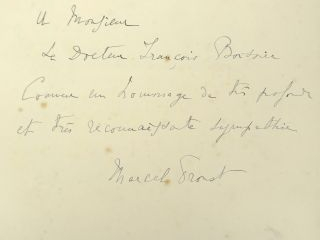 A Monsieur
Le Docteur François
Comme un hommage de très profonde
et très reconnaissante sympathie
Marcel Proust